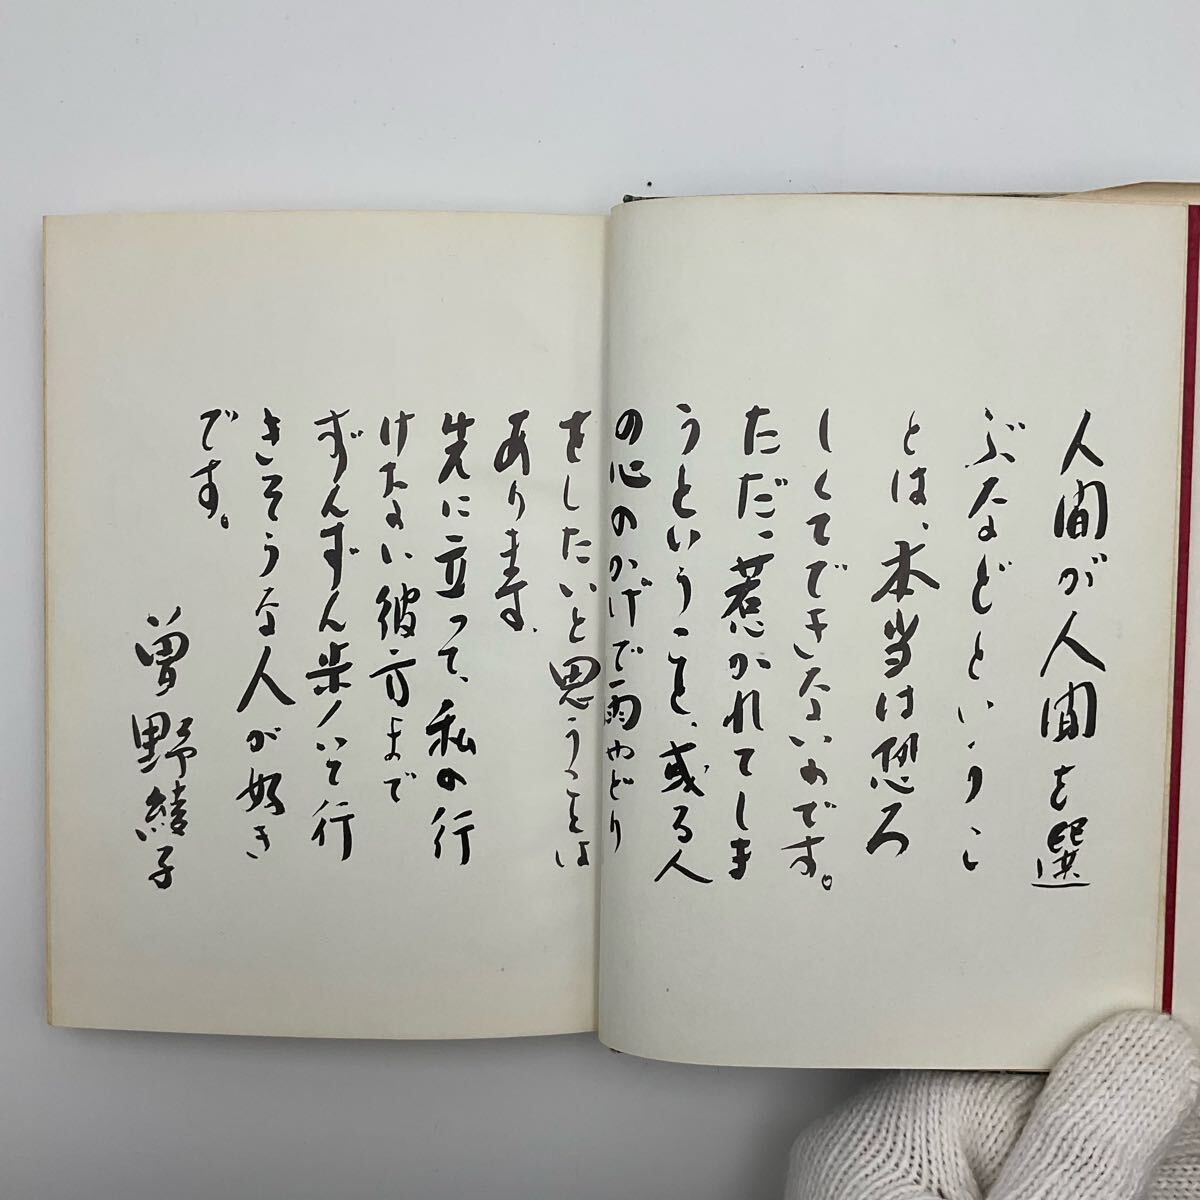 人間が人間を選
ぶなどというこ
とは、本当は恐ろ
しくてできないのです。
ただ、惹かれてしま
うということ、或る人
の心のかげで雨やどり
をしたいと思うことは
あります。
先に立って、私の行
けない彼方まで
ずんずん歩いて行
きそうな人が好き
です。
曽野綾子